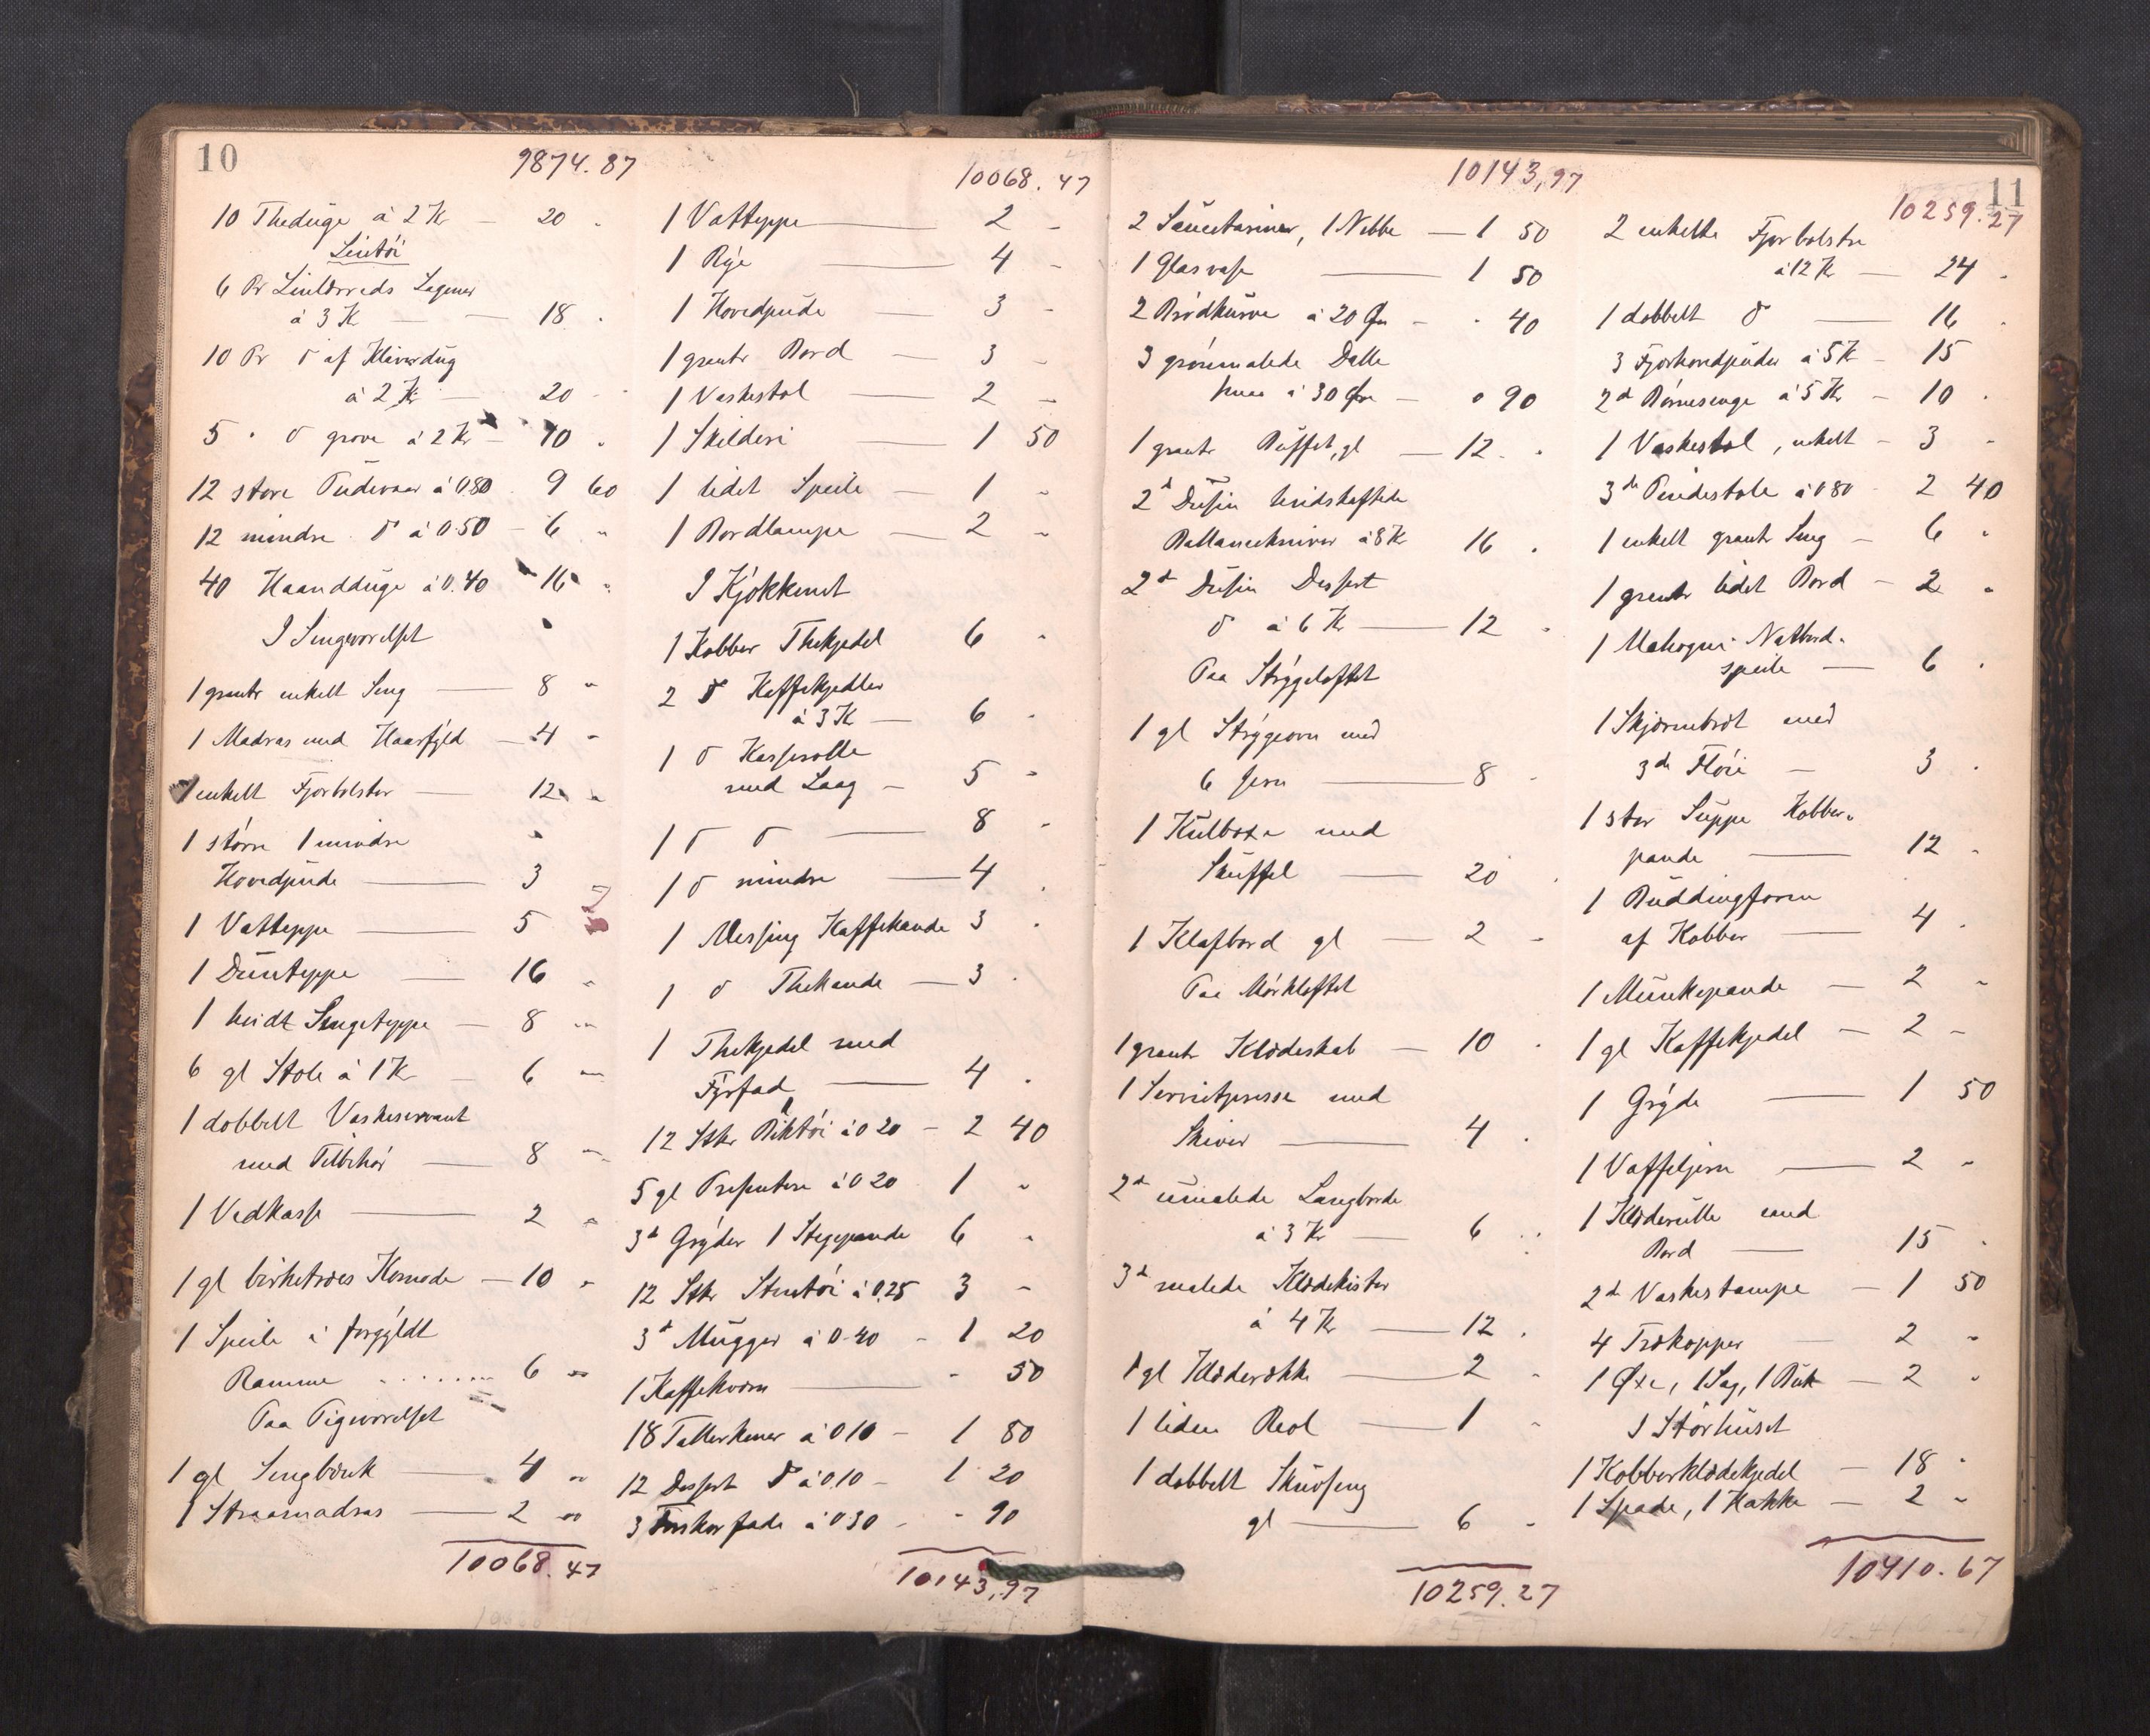 10
9874.87
10 Theduge à 2 Kr — 20 "
Lintöi
6 Pr Linlærreds Lagener
à 3 Kr — — 18 "
10 Pr d af Kliverdug
à 2 Kr — 20 "
5 " d grove à 2 Kr — 10 "
12 store Pudevaar à 0.80 9 60
12 mindre d à 0.50 — 6 "
40 Haandduge à 0.40 16 "
I Sengeværelset
1 grantr enkelt Seng — 8 "
1 Madras med Haarfyld — 4 "
1 enkelt Fjorbolster — 12 "
1 större 1 mindre
Hovedpude — 3
1 Vatteppe — 5
1 Dunteppe — 16 "
1 hvidt Sengeteppe — 8 "
6 gl Stole à 1 Kr — 6 "
1 dobbelt Vaskeservant
med Tilbehör — 8 "
1 Vedkasse — 2 "
1 gl birketræes Komode — 10 "
1 Speile i forgyldt
Ramme ........ 6 "
Paa Pigeværelset
1 gl Sengbænk — 4 "
1 Straamadras — 2 "
10068.47
10068.47
1 Vatteppe — 2 "
1 Rye — 4 "
1 Hovedpude — 3 "
1 grantr Bord — 3 "
1 Vaskestol — 2 "
1 Skilderi — 1 50
1 lidet Speile — 1 "
1 Bordlampe — 2 "
I Kjökkenet
1 Kobber Thekjedel 6 "
2 d Kaffekjedler
à 3 Kr — 6 "
1 d Kasserolle
med Laag — 5 "
1 d d — 8 "
1 d mindre — 4 "
1 Messing Kaffekande 3 "
1 d Thekande — 3 "
1 Thekjedel med
Fyrfad — 4 "
12 Stkr Bliktöi à 0 20 — 2 40
5 gl Presentere à 0 20 1 "
3de Gryder 1 Stegepande 6 "
12 Stkr Stentöi à 0.25 3 "
3de Mugger à 0.40 — 1 20
1 Kaffekværn — " 50
18 Tallerkener à 0 10 — 1 80
12 Dessert d à 0.10 — 1 20
3 Fiskerfade à 0 30 — " 90
10143,97
11
10143,97
2 Saucetariner, 1 Nebbe — 1 50
1 Glasvase — 1 50
2 Brödkurve à 20 Øre — " 40
3 grönmalede Dalle
à 30 Øre — " 90
1 grantr Buffet, gl — 12 "
2de Dusin hvidskaftede
Ballanceknive à 8 Kr 16 "
2de Dusin Dessert
d à 6 Kr — 12 "
Paa Strygeloftet
1 gl Strygeovn med
6 Jern — 8 "
1 Kulboxe med
Skuffel — 20 "
1 Klafbord gl — 2 "
Paa Mörkloftet
1 grantr Klædeskab — 10 "
1 Servietpresse med
Skiver — 4 "
2de umalede Langborde
à 3 Kr — 6 "
3de malede Klædekister
à 4 Kr — 12 "
1 gl Klæderække — 2 "
1 liden Reol — 1 "
1 dobbelt Skuvseng
gl — 6 "
10259.27
10259.27
2 enkelte Fjorbolstre
à 12 Kr — 24 "
1 dobbelt d — 16 "
3 Fjorhovedpuder à 5 Kr — 15
2de Börnesenge à 5 Kr — 10 "
1 Vaskestol, enkelt — 3 "
3de Pindestole à 0 80 2 40
1 enkelt grantr Seng — 6 "
1 grantr lidet Bord — 2 "
1 Mahogni Natbord-
speile — 6 "
1 Skjærmbræt med
3de Flöie — 3 "
1 stor Suppe Kobber-
pande — 12 "
1 Buddingform
af Kobber — 4 "
1 Munkepande — 2 "
1 gl Kaffekjedel — 2 "
1 Gryde — 1 50
1 Vaffeljern — 2 "
1 Klæderulle med
Bord — 15 "
2de Vaskestampe — 1 50
4 Trækopper — 2 "
1 Øxe, 1 Sag, 1 Buk — 2 "
I Störhuset
1 Kobberklædekjedel — 18 "
1 Spade, 1 Hakke — 2 "
10410.67